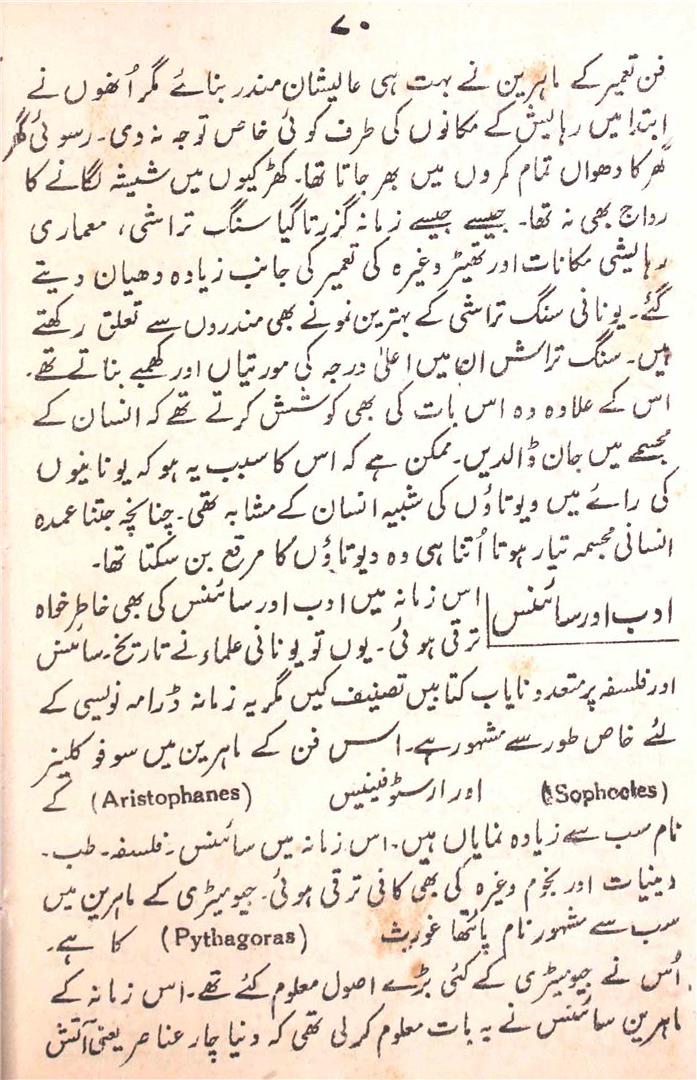 ۷۰
فن تعمیر کے ماہرین نے بہت ہی عالیشان مندر بنائے مگر اُنھوں نے
ابتدا میں رہایش کے مکانوں کی طرف کوئی خاص توجہ نہ دی۔ رسوئی گھر
گھر کا دھواں تمام کمروں میں بھر جاتا تھا۔ کھڑکیوں میں شیشہ لگانے کا
رواج بھی نہ تھا۔ جیسے جیسے زمانہ گزرتا گیا سنگ تراشی، معماری
رہایشی مکانات اور تھیٹر وغیرہ کی تعمیر کی جانب زیادہ دھیان دیتے
گئے۔ یونانی سنگ تراشی کے بہترین نمونے بھی مندروں سے تعلق رکھتے
ہیں۔ سنگ تراش ان میں اعلیٰ درجہ کی مورتیاں اور کھمبے بناتے تھے۔
اس کے علاوہ وہ اس بات کی بھی کوشش کرتے تھے کہ انسان کے
مجسمے میں جان ڈالدیں۔ ممکن ہے کہ اس کا سبب یہ ہو کہ یونانیوں
کی رائے میں دیوتاؤں کی شبیہ انسان کے مشابہ تھی۔ چنانچہ جتنا عمدہ
انسانی مجسمہ تیار ہوتا اُتنا ہی وہ دیوتاؤں کا مرقع بن سکتا تھا۔
ادب اور سائنس اس زمانہ میں ادب اور سائنس کی بھی خاطر خواہ
ترقی ہوئی۔ یوں تو یونانی علماء نے تاریخ۔ سائنس
اور فلسفہ پر متعدد نایاب کتابیں تصنیف کیں مگر یہ زمانہ ڈرامہ نویسی کے
لئے خاص طور سے مشہور ہے۔ اس فن کے ماہرین میں سوفوکلینر
(Sophocles) اور ارسٹوفینیس (Aristophanes) کے
نام سب سے زیادہ نمایاں ہیں۔ اس زمانہ میں سائنس۔ فلسفہ۔ طب۔
دینیات اور نجوم وغیرہ کی بھی کافی ترقی ہوئی۔ جیومیٹری کے ماہرین میں
سب سے مشہور نام پائتھاغورث (Pythagoras) کا ہے۔
اُس نے جیومیٹری کے کئی بڑے اصول معلوم کئے تھے۔ اس زمانہ کے
ماہرین سائنس نے یہ بات معلوم کرلی تھی کہ دنیا چار عناصر یعنی آتش